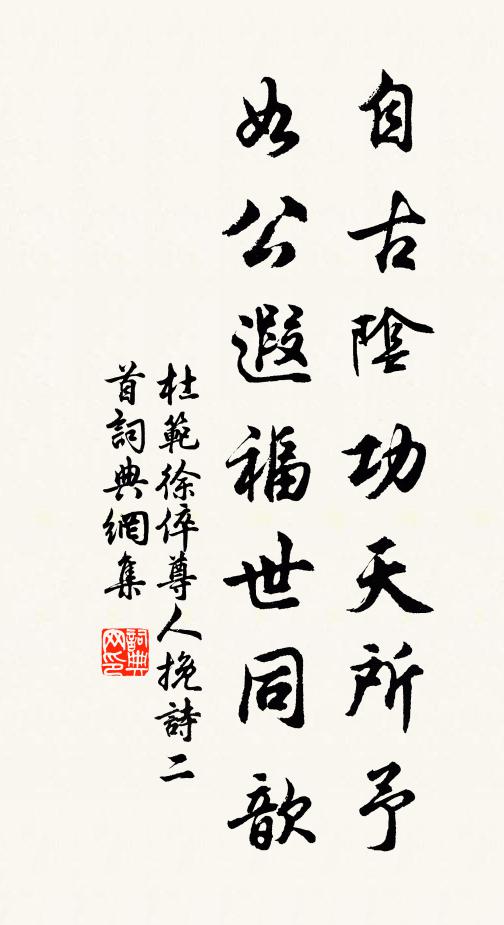 自古陰功天所予
如公遐福世同歆
杜範徐倅尊人挽詩二
首詞典網集
詞典
网印